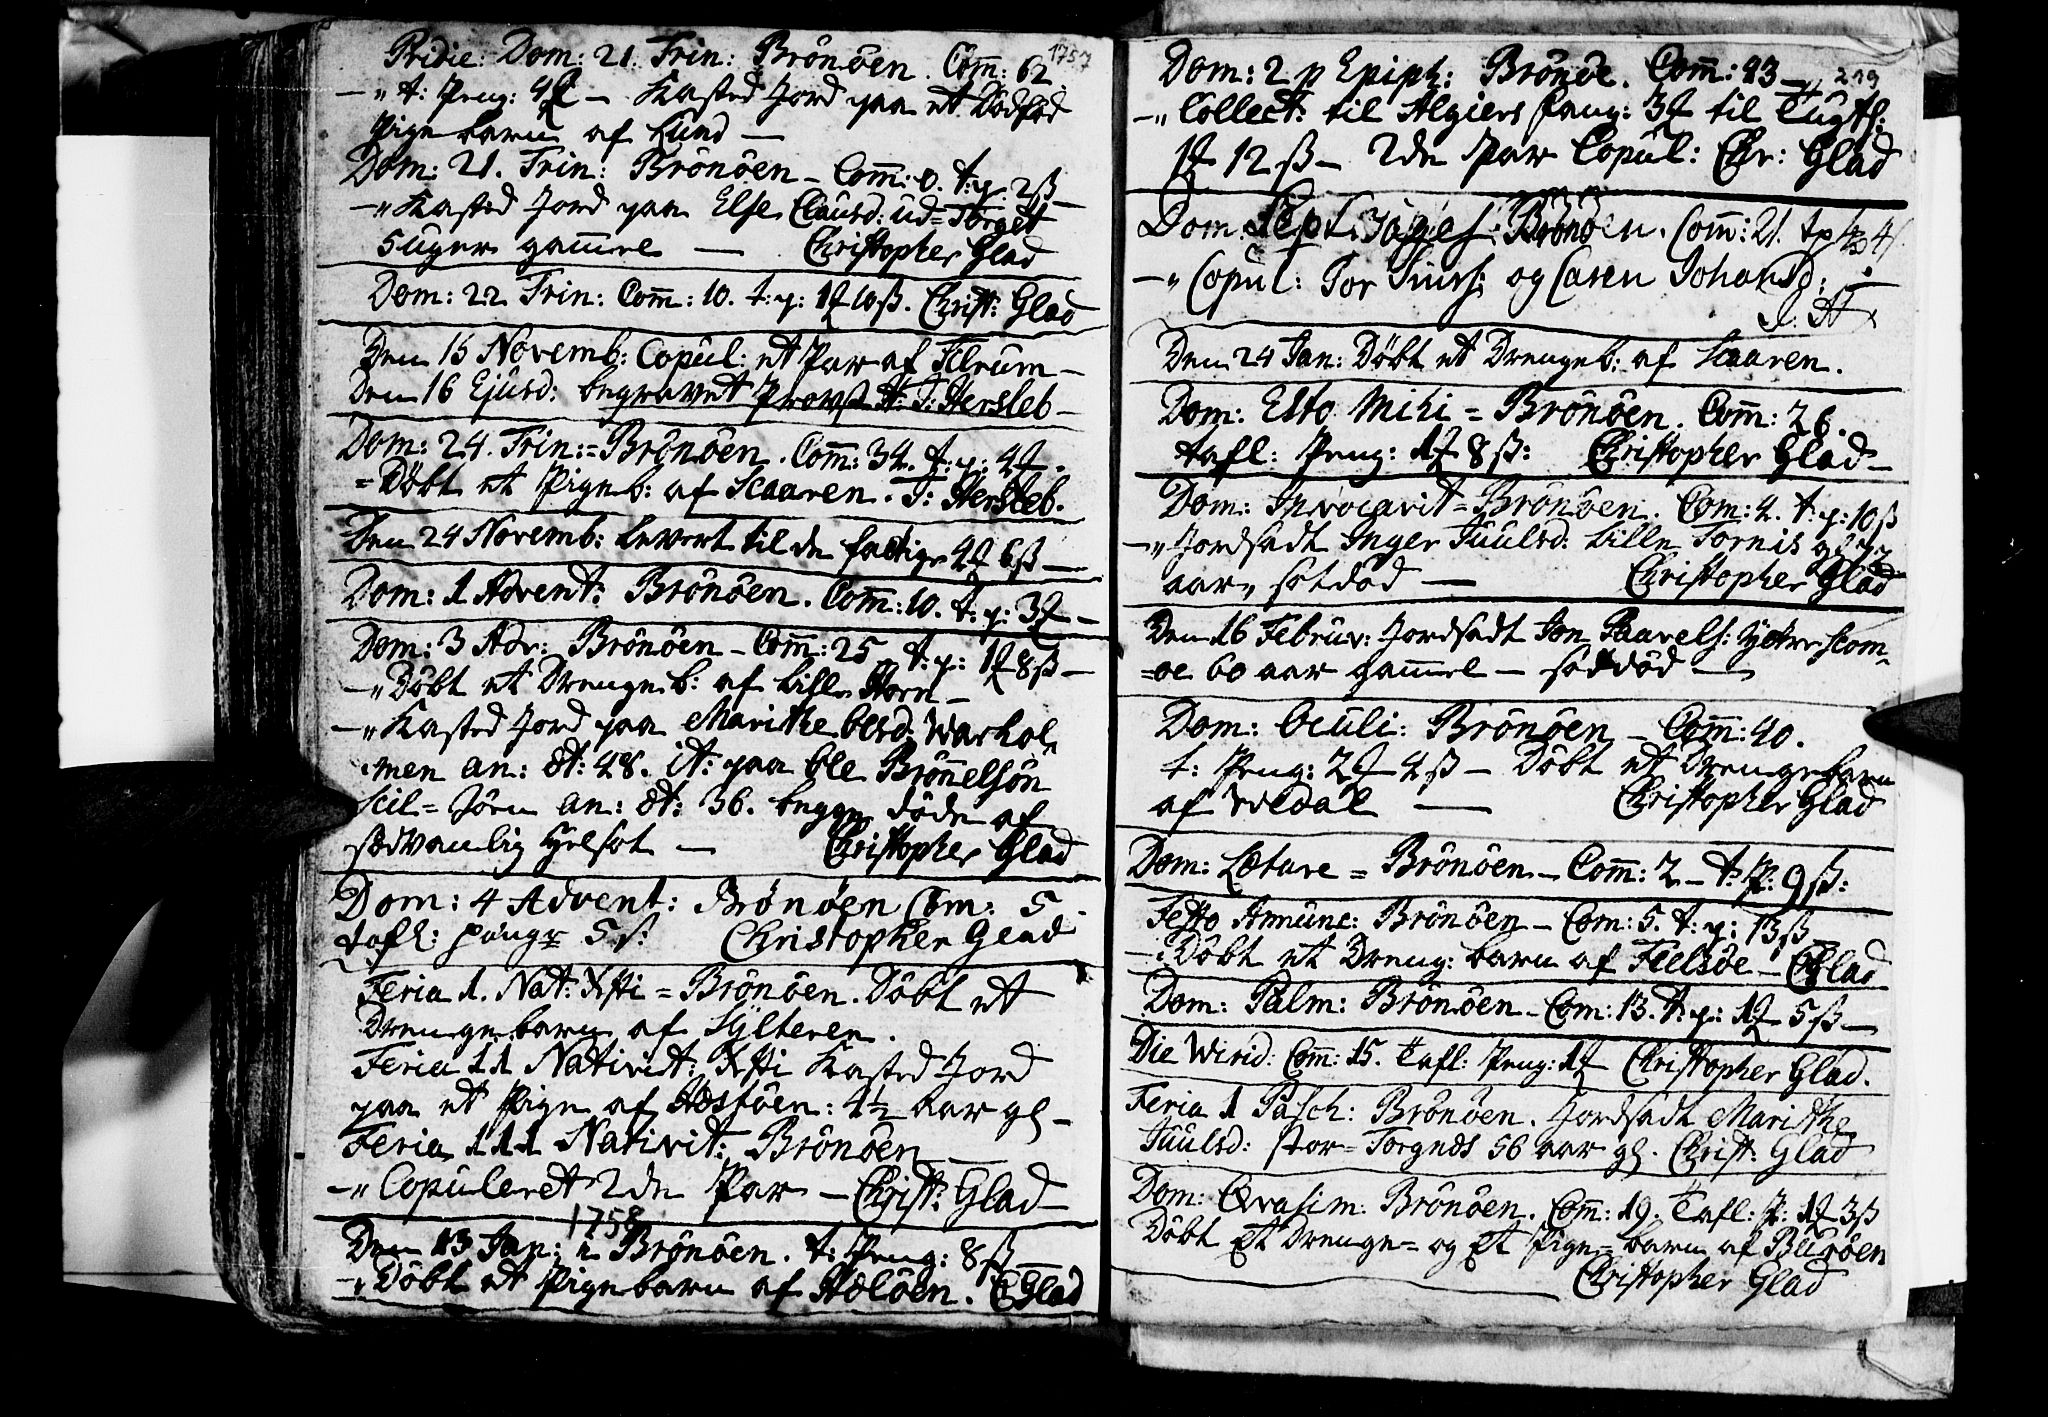 1757
Pridie: Dom: 21. Trin: Brönöen. Com̄: 62
–„ t: Peng: 4 – Kasted Jord paa et Dødfød
Pige barn af Lund –
Dom: 21. Trin: Brönöen – Com̄: 0. t: p: 2ß –
–„ Kasted Jord paa Else Clausd: ud= Torget
5 uger gam̄el — Christopher Glad
Dom: 22 Trin: Com̄: 10. t: p: 1 10ß. Christ: Glad
Den 15 Novemb: Copul: et Par af Tilrum –
Den 16 Ejusd: begravet Provst H: J: Hersleb –
Dom: 24. Trin:= Brönöen. Com̄: 34. t: p: 4 .
= Döbt et Pigeb: af Scaaren. J: Hersleb.
Den 24 Novemb: Levert til de fattige 4 6ß –
Dom: 1 Advent: Brönöen. Com̄: 10. t: p: 3 –
Dom: 3 Adv: Brönöen – Com̄: 25 t: p: 1 8ß –
–„ Döbt et Drengeb: af Lisle Horn –
–„ Kasted Jord paa Marithe Olesd: Warhol=
men an: æt: 48. it: paa Ole Brönnelsön
Scil= Jörn an: æt: 36. begge döde af
sædvanlig Helsot — Christopher Glad
Dom: 4 Advent: Brönöen Com̄: 5
tafl: penger 5ß: Christopher Glad
Feria 1. Nat: Xsti = Brönöen. Döbt et
Drengebarn af Sÿlteren.
Feria 11 Nativit: Xsti Kasted Jord
paa et Pige af Hæstöen: 4½ Aar gl –
Feria 111 Nativit: Brönöen —
–„ Copuleret 2de Par – Christ: Glad –
1758
Den 13 Jan: i Brönöen. t: Peng: 8ß —
–„ Döbt et Pigebarn af Hælöen. CGlad
219
Dom: 2 p Epiph: Brönöe. Com̄: 83 –
–„ Collect: til Algiers Fang: 3 til Tugth:
1 12ß – 2de Par Copul: Chr: Glad
Dom: Septuages: Brönöen. Com̄: 21. tp
–„ Copul: Tor Siurs: og Caren Johansd:
J. H
Den 24 Jan: Döbt et Drengeb: af Scaaren.
Dom: Esto Mihi = Brönöen. Com̄: 26.
tafl: Peng: 1 8ß: Christopher Glad –
Dom: Invocavit = Brönöen. Com: 4. t: p: 10ß
–„ Jordsadt Inger Juulsd: Lille Tornis gl 77
aar, sotdöd — Christopher Glad
Den 16 Februr: Jordsadt Jon Paavels: Yttre scom=
=oe 60 aar gam̄el – sotdöd –
Dom: Oculi: Brönöen – Com̄: 40.
t: Peng: 2 4ß – Döbt et Drengebarn
af Weedal — Christopher Glad
Dom: Lætare = Brönöen – Com̄: 2 – t: P: 9ß:
Festo Annunc: Brönöen – Com: 5. t: p: 13ß
–„ Döbt et Dreng: barn af Tilsöe – CGlad
Dom: Palm: Brönöen – Com: 13. t: p: 1 5ß –
Die Wirid: Com̄: 15. Tafl: Peng: 1 Christopher Glad.
Feria 1 Pasch: Brönöen. Jordsadt Marithe
Juulsd: stor= Torgnæs 56 aar gl. Christ: Glad
Dom: Qvasim: Brönöen. Com̄: 19. Tafl: P: 1 3ß
Döbt Et Drenge= og Et Pige= barn af Buröen
Christopher Glad